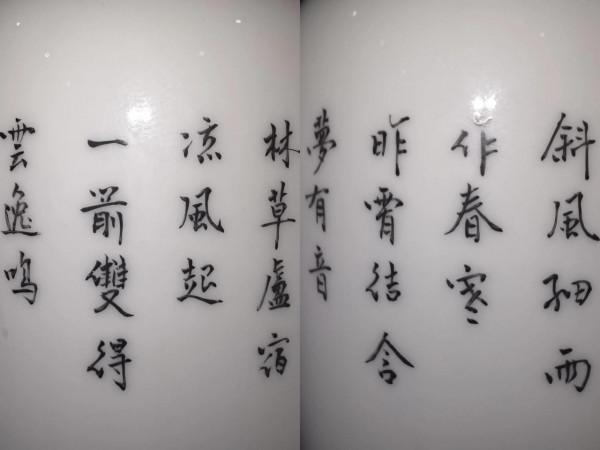 斜風細雨
作春寒
昨霄結含
夢有音
林草盧宿
凉風起
一前雙得
雲逸鳴